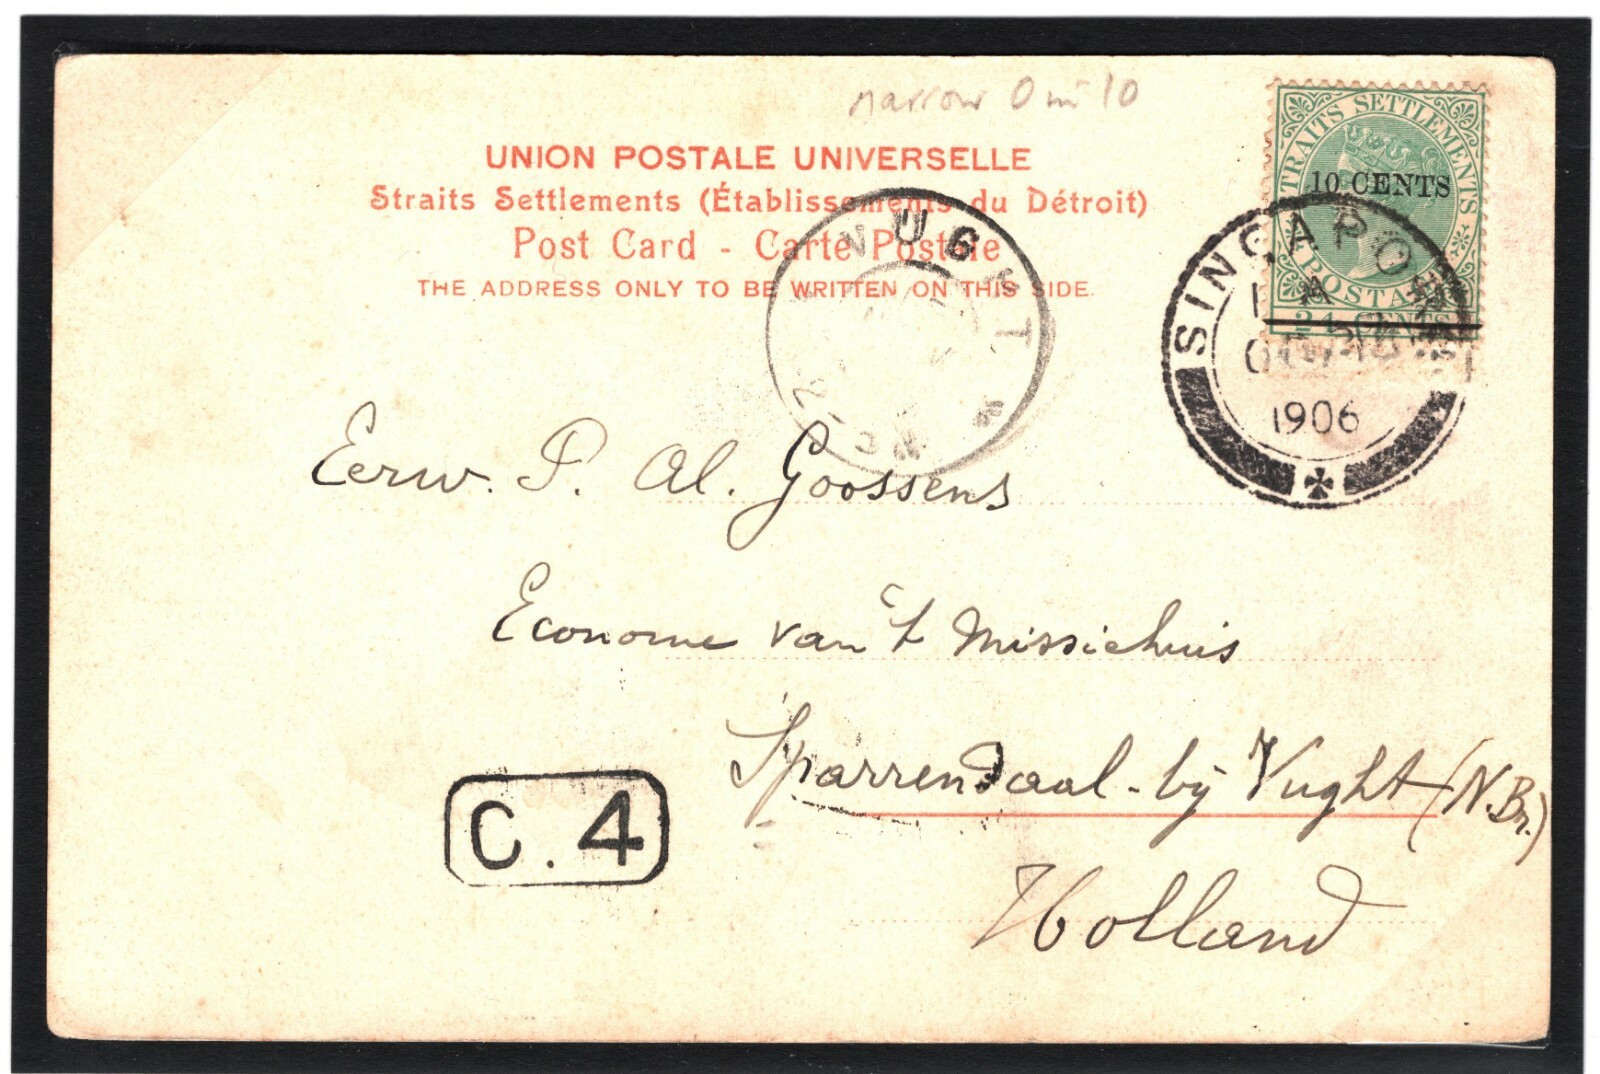 narrow 0 in 10
UNION POSTALE UNIVERSELLE
Straits Settlements (Établissements du Détroit)
Post Card - Carte Postale
THE ADDRESS ONLY TO BE WRITTEN ON THIS SIDE.
STRAITS SETTLEMENTS
10 CENTS
POSTAGE
24 CENTS
VUGHT
SINGAPORE
1906
Eerw. P. Al. Goossens
Econome van 't Missiehuis
Sparrendaal - bij Vught (N. Br.)
Holland
C. 4